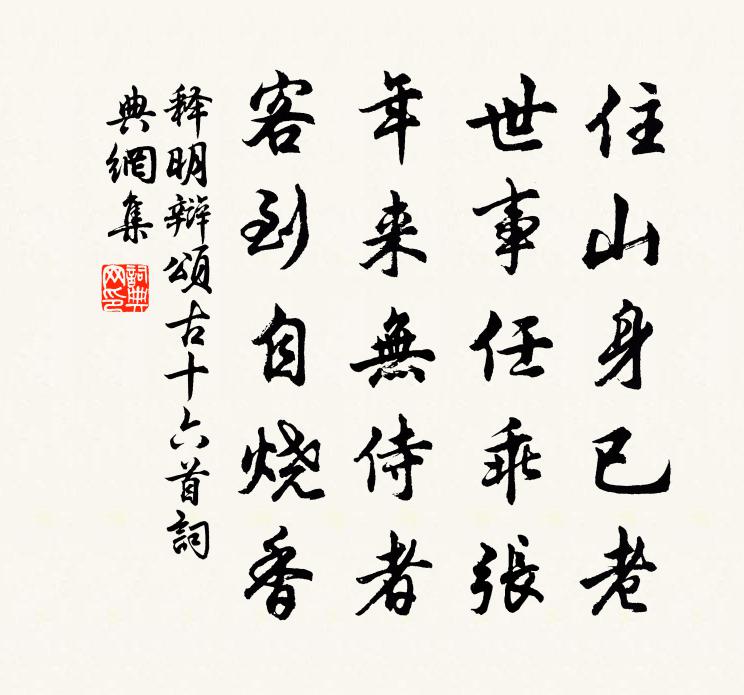 住山身已老
世事任乖張
年来無侍者
客到自烧香
释明辩頌古十六首詞
典網集
詞典
网印